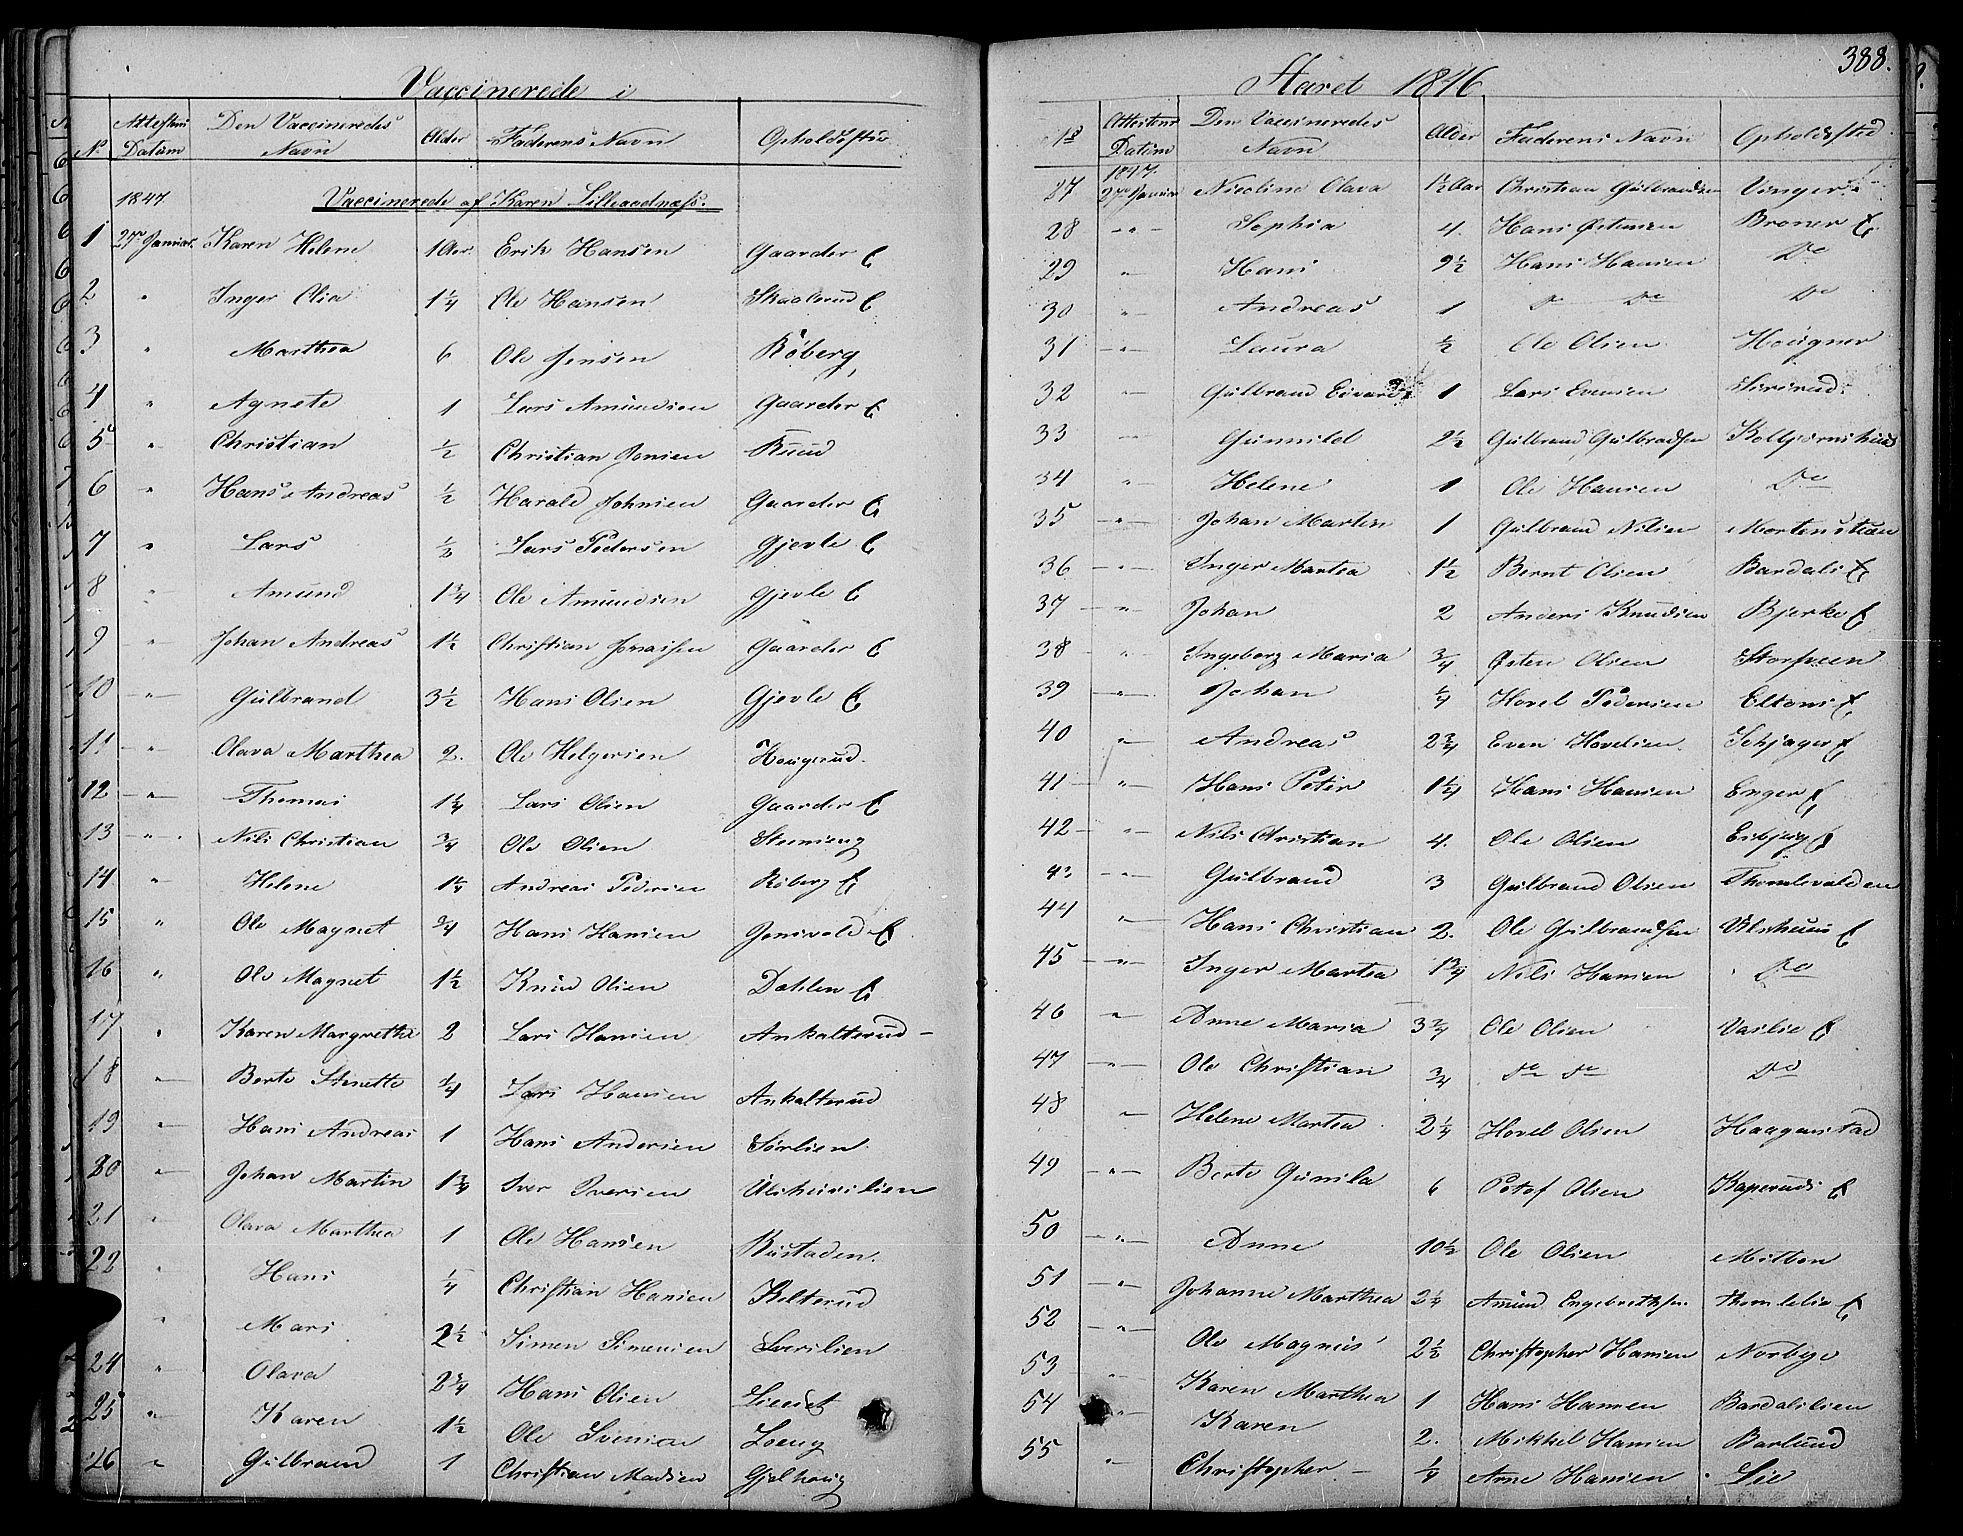 Vaccinerede i
No Attestens Datum Den Vaccineredes Navn Alder Faderens Navn Opholdssted
1847 Vaccinerede af Karen Lilleaadnæss.
1 27de Januar. Karen Helene 1 Aar. Erik Hansen Gaarder E
2 " Inger Olia 1 1/4 Ole Hansen Skaalerud E
3 " Marthea 6 Ole Jensen Röberg
4 " Agnete 1 Lars Amundsen Gaarder E
5 " Christian 1/2 Christian Jonsen Ruud
6 " Hans Andreas 1/2 Harald Johnsen Gaarder E
7 " Lars 1/2 Lars Pedersen Gjevle E
8 " Amund 1 3/4 Ole Amundsen Gjevle E
9 " Johan Andreas 1 1/2 Christian Jonassen Gaarder E
10 " Gulbrand 3 1/2 Hans Olsen Gjevle E
11 " Olava Marthea 2. Ole Helgersen Hougerud.
12 " Thomas 1 1/4 Lars Olsen Gaarder E
13 " Nils Christian 3/4 Ole Olsen Steinseng
14 " Helene 1 1/4 Andreas Pedersen Röberg E
15 " Ole Magnet 3/4 Hans Hansen Jonsvold E
16 " Ole Magnet 1 1/2 Knud Olsen Dahlen E
17 " Karen Margrethe 2 Lars Hansen Ankalterud
18 " Berte Stinette 3/4 Lars Hansen Ankalterud
19 " Hans Andreas 1 Hans Andersen Sørlien
20 " Johan Martin 1 3/4 Iver Iversen Ulshuuslien
21 " Olava Marthea 1 Ole Hansen Rustaden.
22 " Hans 1/4 Christian Hansen Kelterud
" Mari 2 1/2 Simen Simensen Sverilien
24 " Olava 2 3/4 Hans Olsen Lieeiet
25 " Karen 1 1/2 Ole Svensen Loeng
26 " Gulbrand 1 Christian Madsen Gjelhoug
388.
Aaret 1846
No Attestens Datum Den Vaccineredes Navn Alder Faderens Navn Opholdssted
1847.
27 27de Januar Nicoline Olava 1 1/2 Aar Christian Gulbrandsen Vinger E
28 " Sophia 4. Hans Østensen Broner E
29 " Hans 9 1/2 Hans Hansen Do
30 " Andreas 1 Do Do Do
31 " Laura 1/2 Ole Olsen Hougner
32 " Gulbrand Edvard 1 Lars Evensen Sirirud
33 " Gunnild 2 1/2 Gulbrand Gulbradsen Kolbjørnshuus
34 " Helene 1 Ole Hansen Do
35 " Johan Martin 1 Gulbrand Nilsen Mortenstuen
36 " Inger Martea 1 1/2 Bernt Olsen Bardals E
37 " Johan 2 Anders Knudsen Bjerke E
38 " Ingeborg Maria 3/4 Østen Olsen Storsveen
39 " Johan 1/4 Hovel Pedersen Eltons E
40 " Andreas 2 3/4 Even Hovelsen Schjager E
41 " Hans Peter 1 1/4 Hans Hansen Enger E
42 " Nils Christian 4. Ole Olsen E
43 " Gulbrand 3 Gulbrand Olsen Thomlevolden
44 " Hans Christian 2. Ole Gulbrandsen Ulshuus E
45 " Inger Martea 1 3/4 Nils Hansen Do
46 " Anne Maria 3 3/4 Ole Olsen Vaslie E
47 " Ole Christian 3/4 Do Do Do
48 " Helene Martea 2 1/4 Hovel Olsen Haagenstad
49 " Berte Gunila 6 Peter Olsen Kaperuds E
50 " Anne 10 1/2 Ole Olsen Mitbøn
51 " Johanne Marthea 2 1/4 Amund Engebrethsen Thomlelie E
52 " Ole Magnus 2 1/2 Christopher Hansen Norbye
53 " Karen Marthea 1 Hans Hansen Bardalslien
54 " Karen 2. Mikkel Hansen Barlund
55 " Christopher 1/4 Arne Hansen Lie